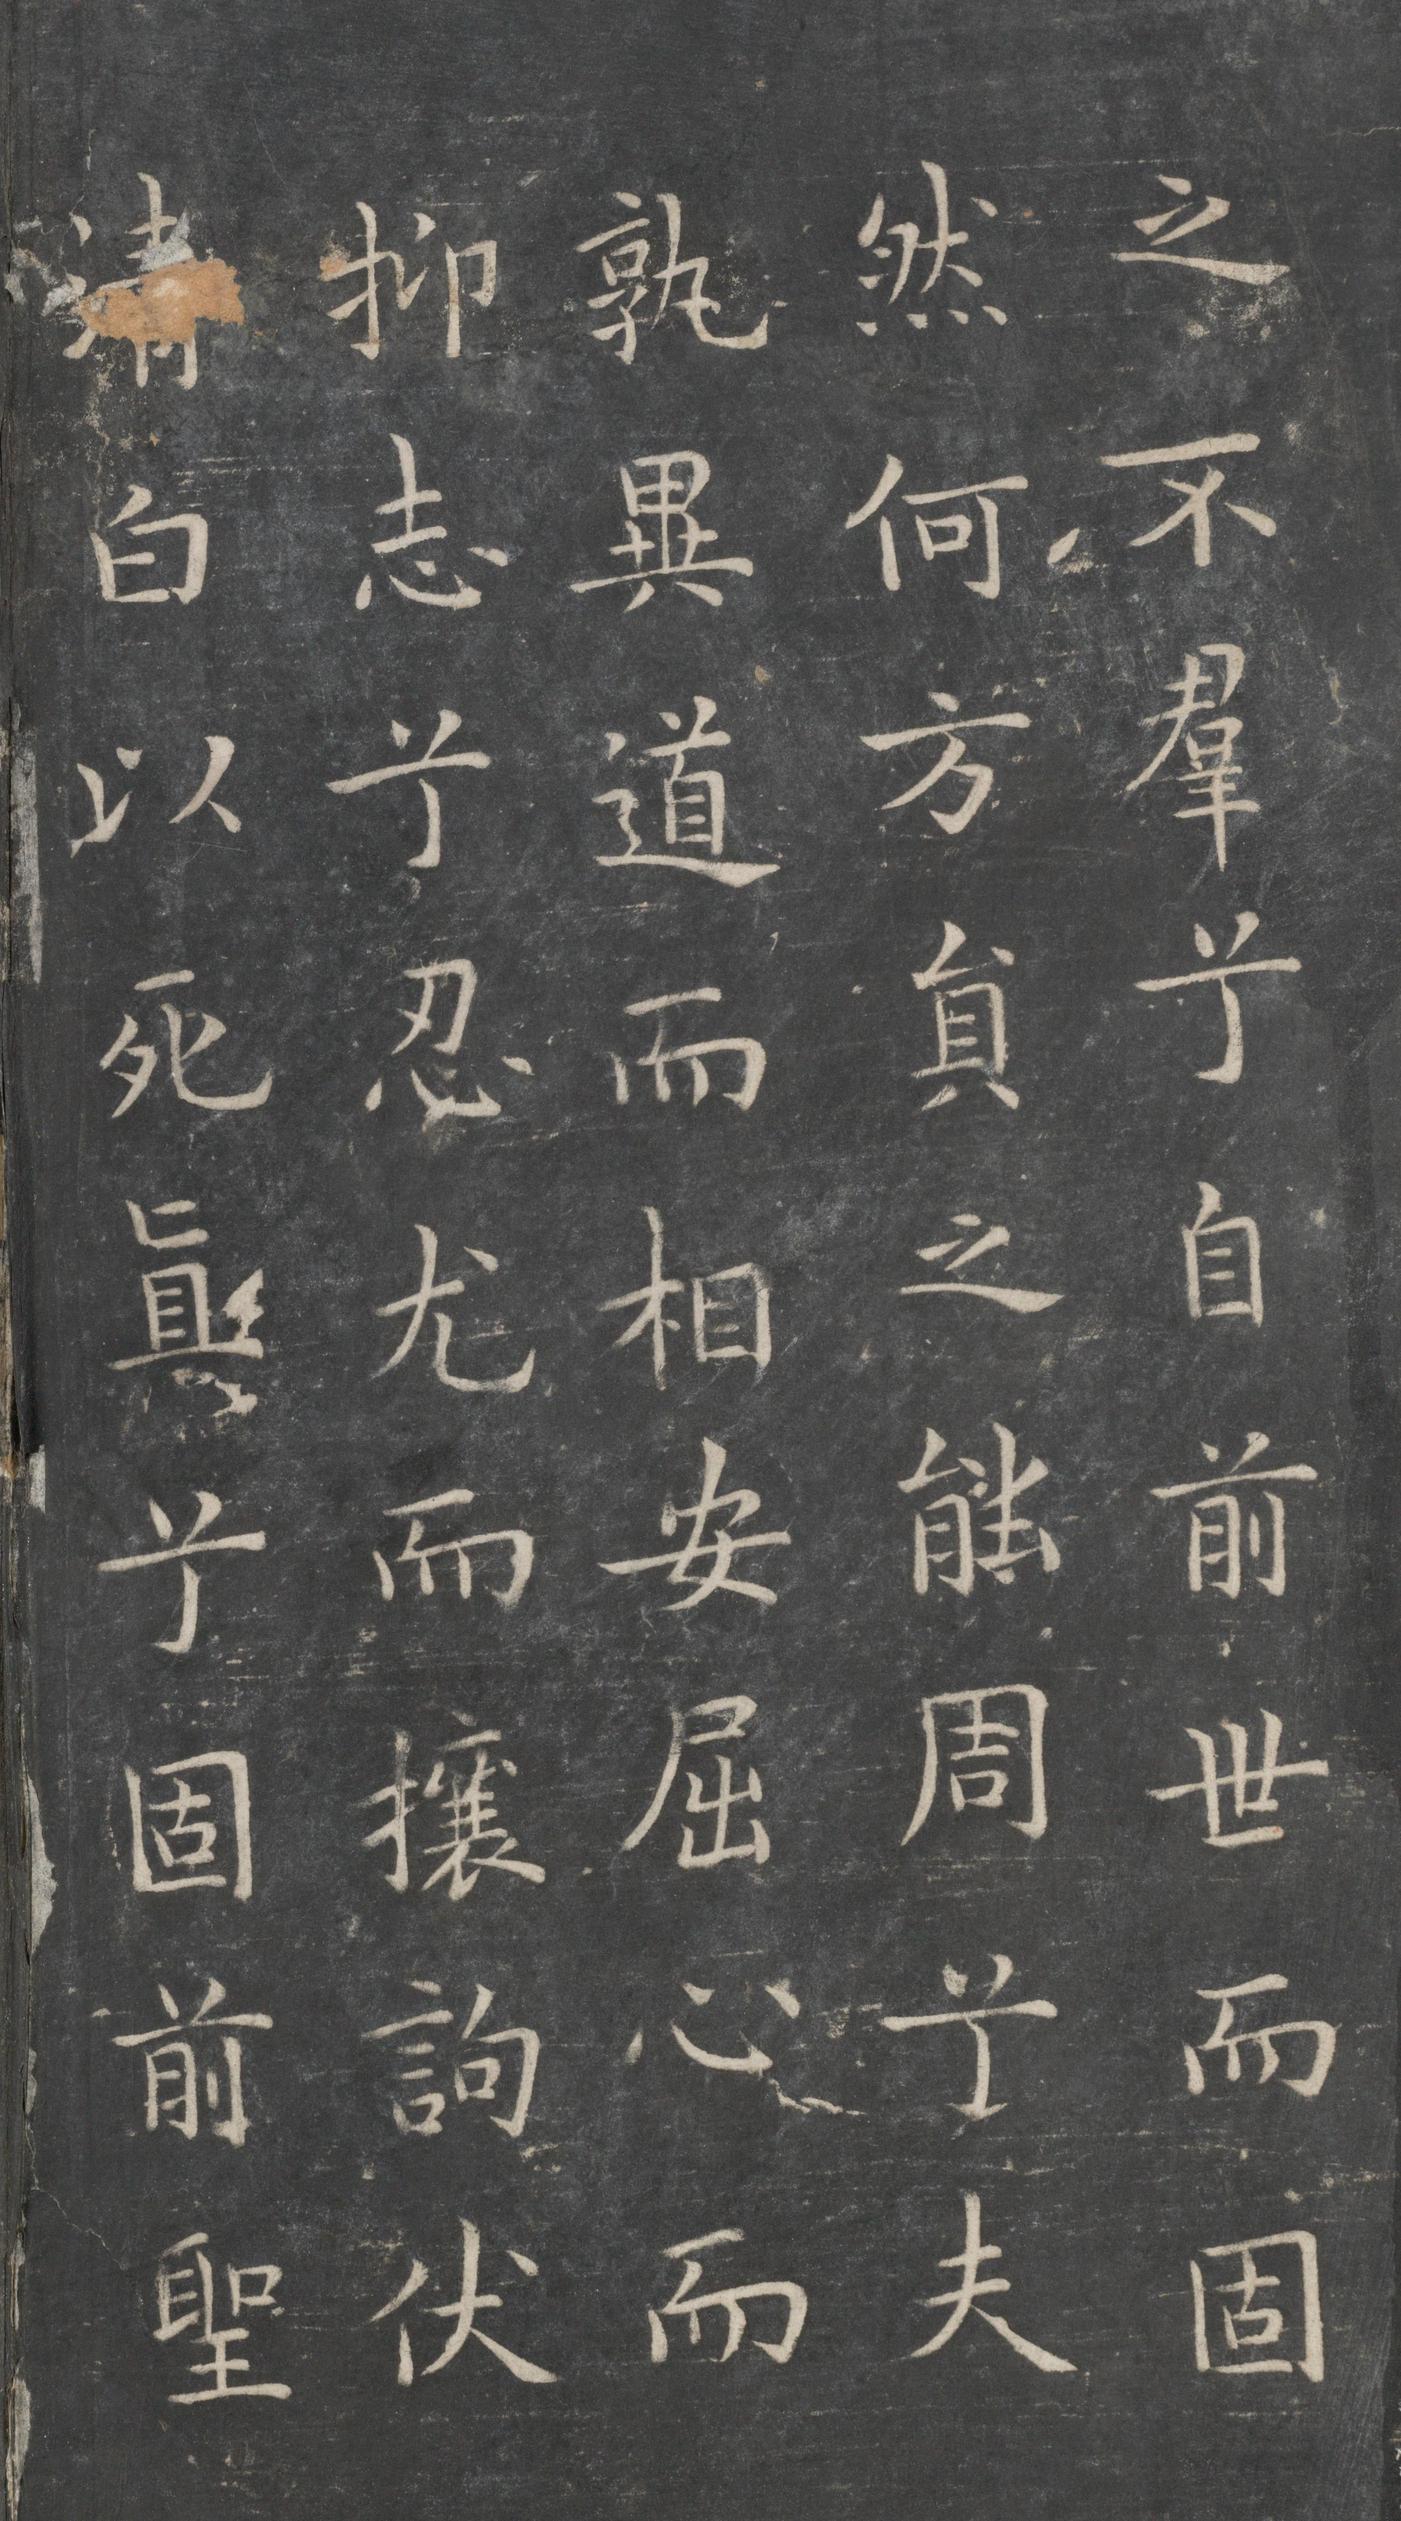 之不羣兮自前世而固
然何方員之能周兮夫
孰異道而相安屈心而
抑志兮忍尤而攘詢伏
清白以死直兮固前聖